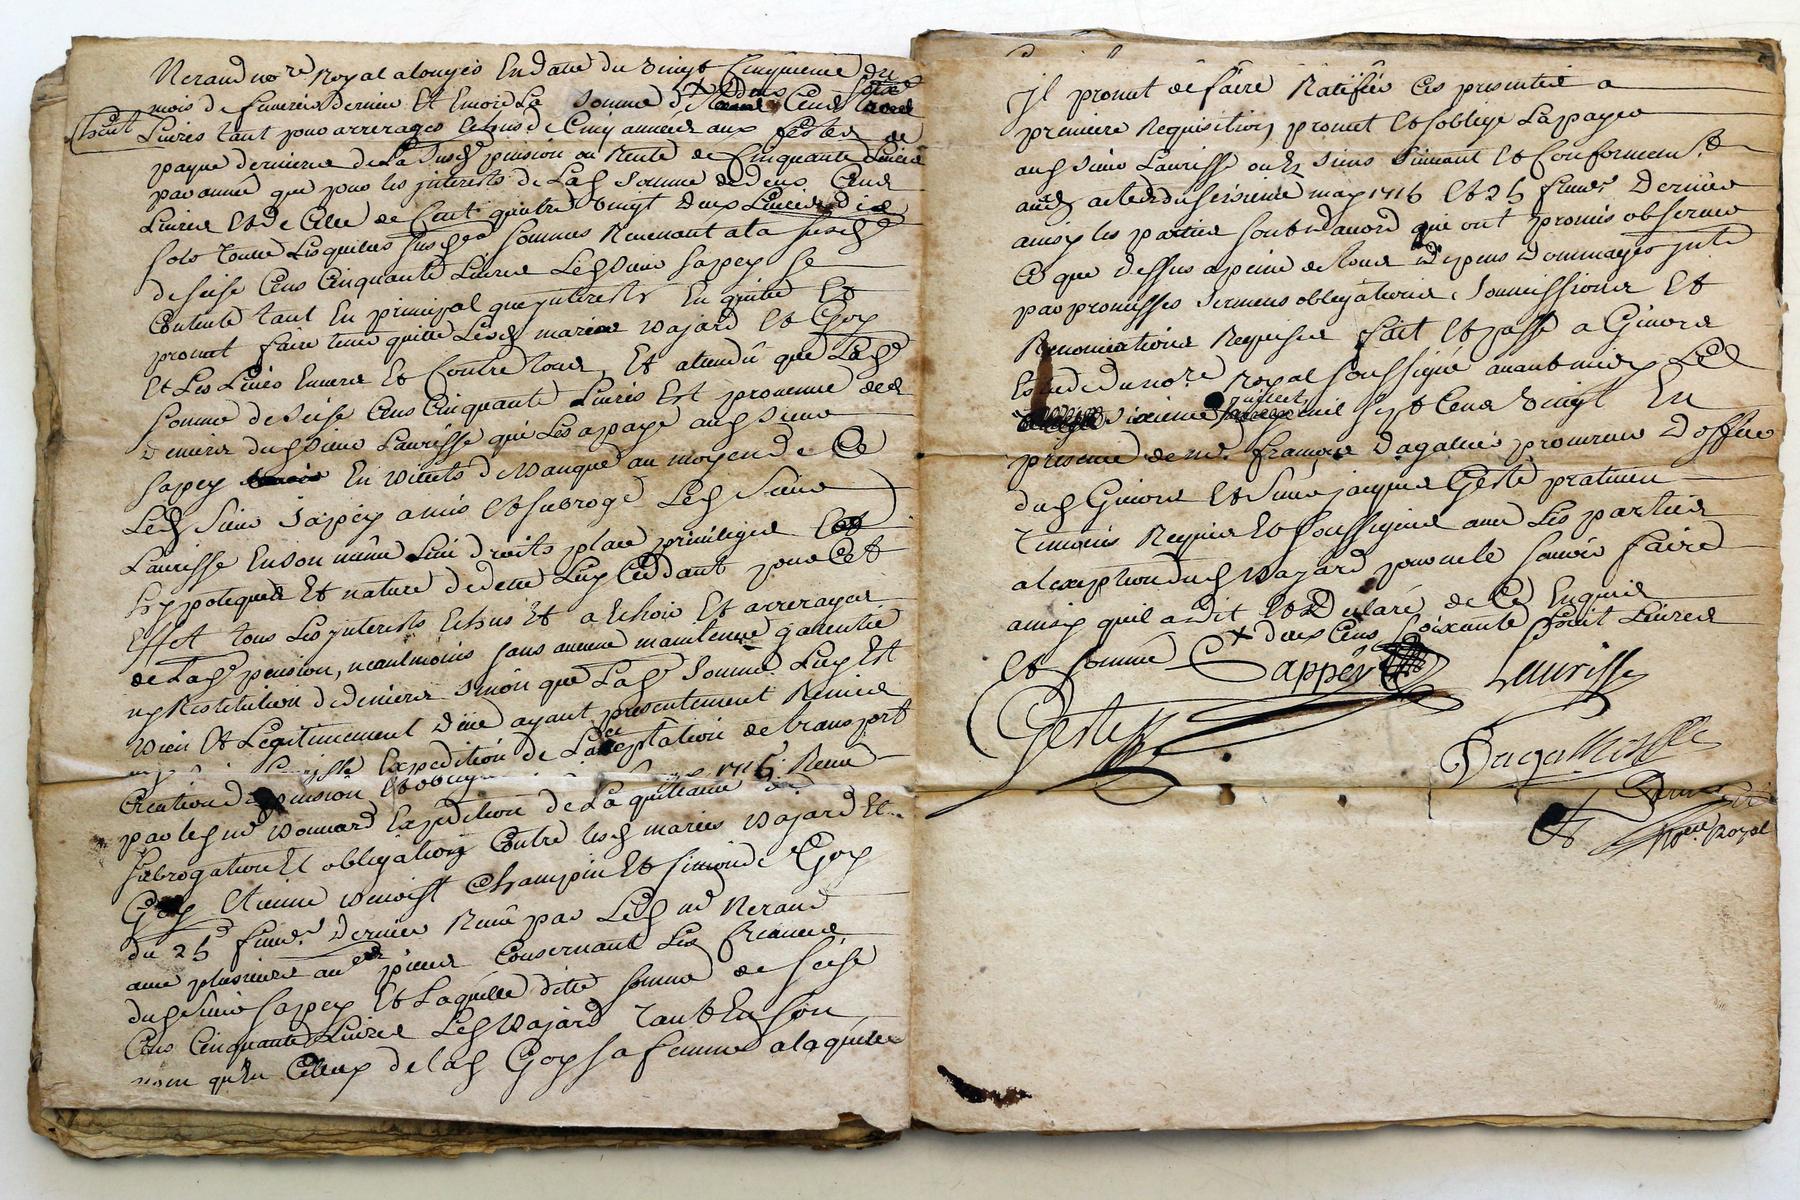 Nerand no.re Royal a longes En datte du vingt Cinquieme du
mois de feurier dernier Et Encor La somme de Cens
huit
Liures tant pour arrerages Echus de Cinq années aux festes de
paque dernieres de La susd pension ou Rente de Cinquante Liures
par année que pour les jnterests de Lad somme de deux Cens
Liures Et de Celle de Cent quatre vingt deux Liures dix
sols toutes Lesquelles susd sommes Reuenant a la susd
de seise Cens Cinquante Liures Led Sieur Sapey se
Contente tant En principal que jnterests En quitte Et
promet faire tenir quitte Lesd mariés Vajard Et Goy
Et Les Leurs Enuers Et Contre tous, Et atendu que Lad
somme de seise Cens Cinquante Liures Est prouenue des
deniers dud Sieur Laurisse qui Les a payé aud Sieur
Sapey En billets de banque au moyen de Ce
Led Sieur Sappey a mis Et subrogé Led Sieur
Laurisse En son même Lieu droits place priuileges Et
hypoteques Et nature de dette Luy Ceddant pour Cet
Effet tous Les jnterests Echus Et a Echoir Et arrerages
de Lad pension, neantmoins sans aucune maintenue garentie
ny Restitution de deniers sinon que Lad somme Luy Est
bien Et Legitimement düe ayant presentement Remis
Expedition de La ception de transport
Creation de pension Et oblig 1716 Receu
par led me Vonnard Expedition de La quittance
subrogation Et obligation Contre lesd mariés Vajard Et
Goy Etienne benoist Champin Et Simonde Goy
du 25 feur.r Dernier Receu par Led me Nerand
auec plusieurs autres pieces Consernant Les Creances
dud Sieur Sapey Et Laquelle ditte somme de seise
Cens Cinquante Liures Led Vajard tant En son
nom qu'En Celluy de lad Goy sa femme a laquelle
Jl promet de faire Ratifier Ces presentes a
premiere Requisition, promet Et s'oblige La payer
aud Sieur Laurisse ou Es siens suiuant Et Conformement
aud actes du seisieme may 1716 Et 25 feur.r Dernier
ainsy les parties sont d'acord qui ont promis obseruer
Ce que dessus a peine de tous Depens Dommages jnts
par promesses sermens obligations, soumissions Et
Renonciations Requises fait Et passé a Giuors
Estude du no.re Royal soussigné auant midy Le
sixieme juillet mil sept Cens vingt En
presence de me. françois Dagallier procureur d'office
dud Giuors Et Sieur jacques Geste praticien
temoins Requis Et soussignés auec Les parties
a l'exeption dud Vajard pour ne le sauoir faire
ainsy qu'il a dit Et Declaré de Ce Enquis
Et sommé + deux Cens soixante huit Liures
Sappey
Laurisse
Geste
Dagallier
Nerand
No.re Royal